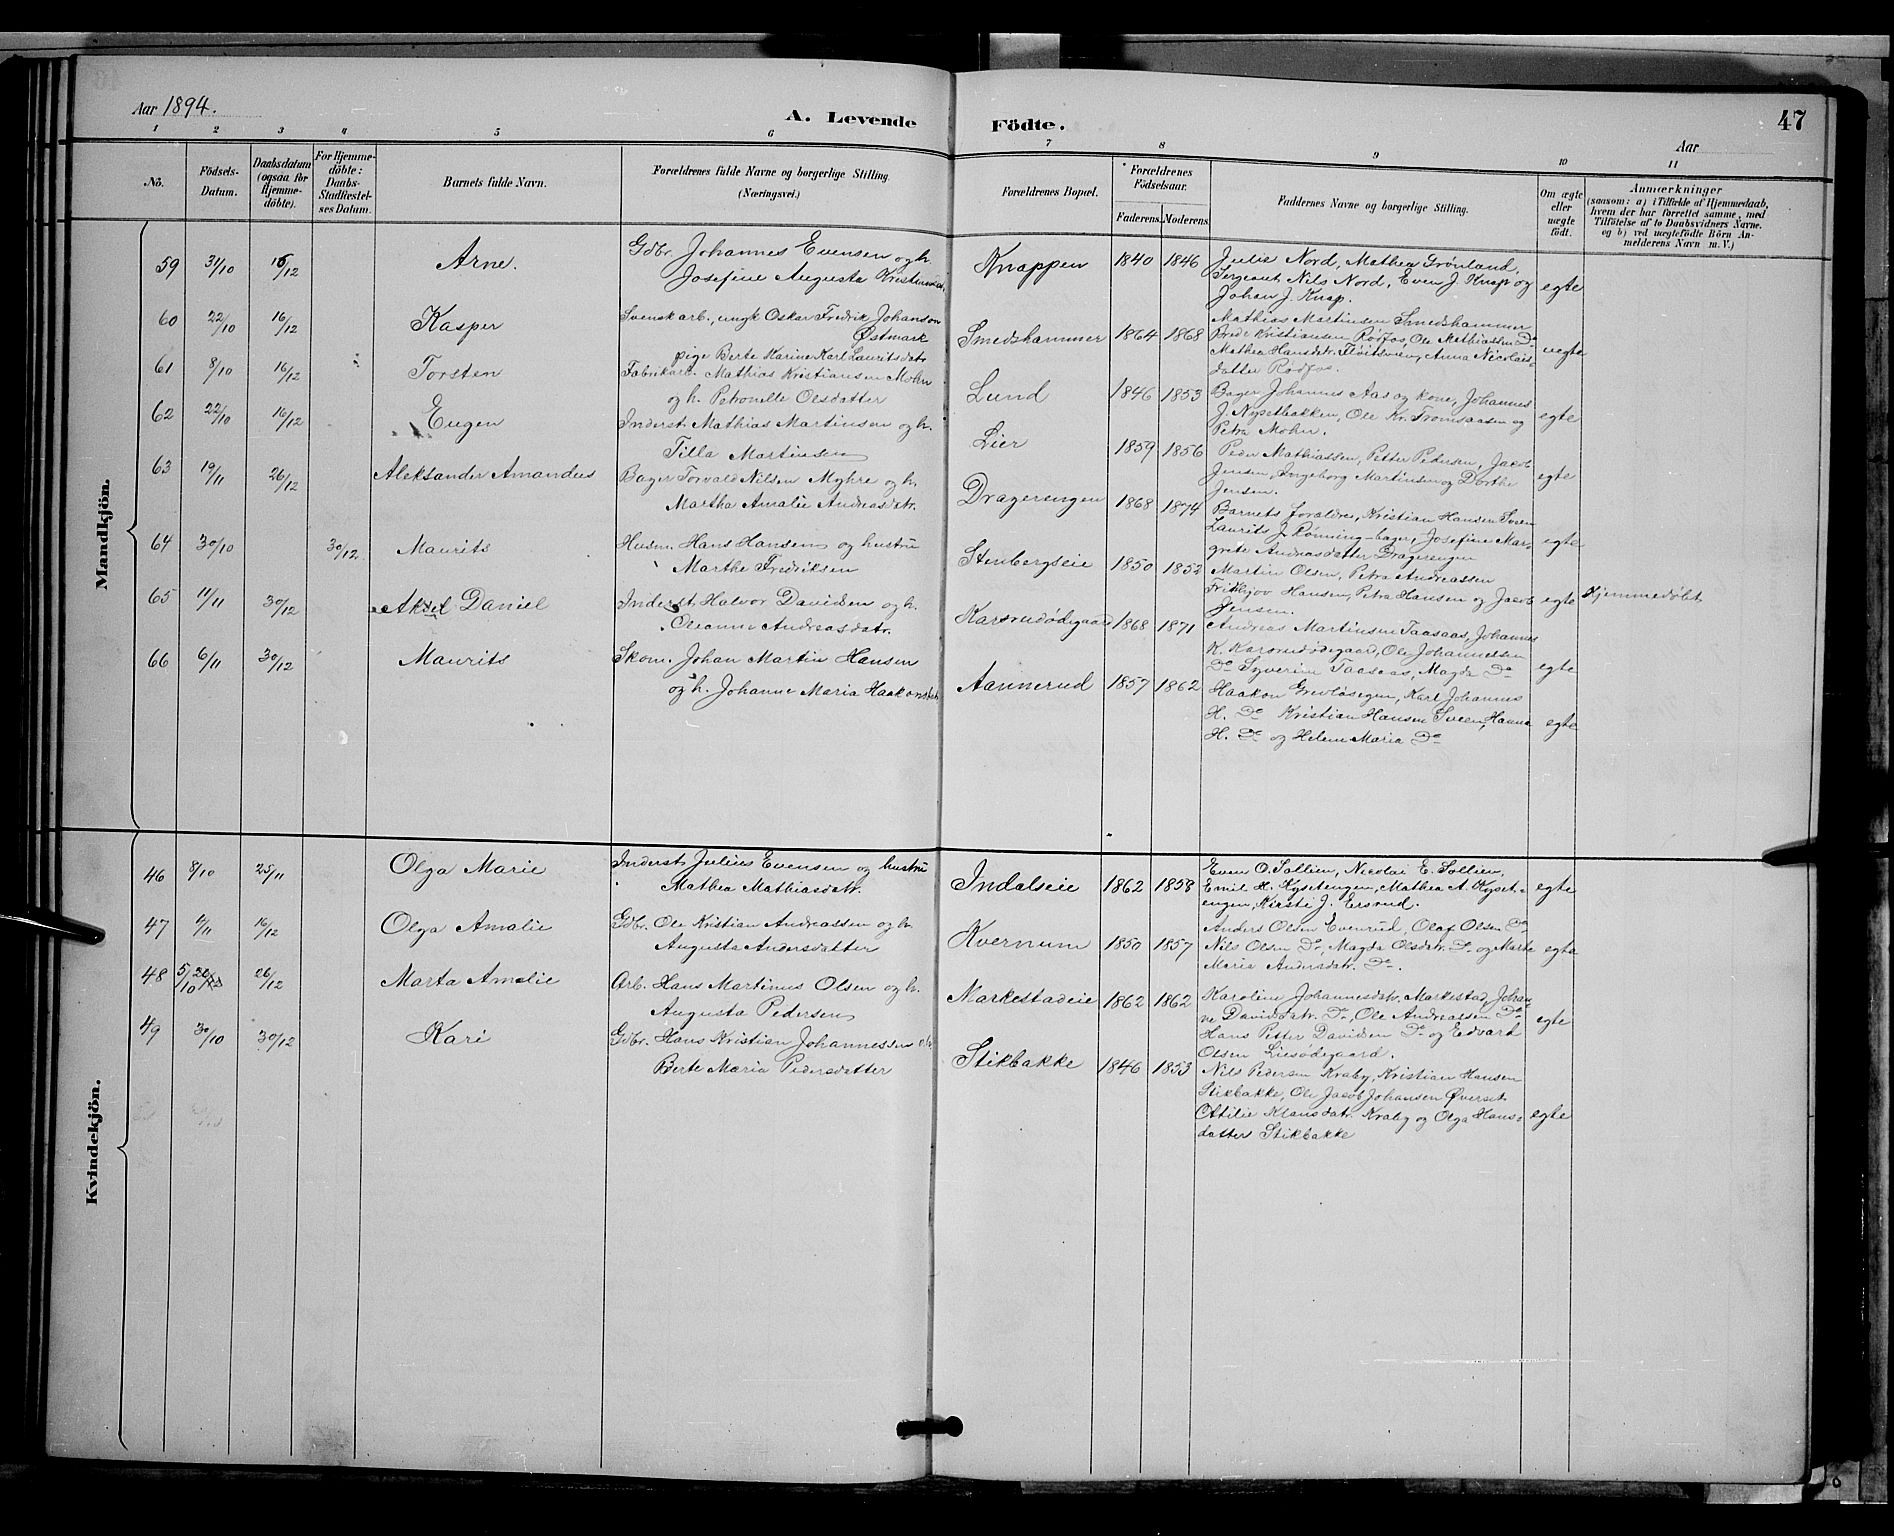 Aar 1894.
A. Levende Födte.
47
Aar
1 2 3 4 5 6 7 8 9 10 11
No.
Födsels-Datum.
Daabsdatum (ogsaa for Hjemmedöbte).
For Hjemmedöbte: Daabs-Stadfæstelses Datum.
Barnets fulde Navn.
Forældrenes fulde Navne og borgerlige Stilling. (Næringsvei.)
Forældrenes Bopæl.
Forældrenes Födselsaar.
Faderens. Moderens.
Faddernes Navne og borgerlige Stilling.
Om ægte eller uægte födt.
Anmærkninger
(saasom: a) i Tilfælde af Hjemmedaab, hvem der har forrettet samme, med Tilföielse af to Daabsvidners Navne. og b) ved uægtefödte Börn Anmelderens Navn m. V.)
Mandkjön.
59 31/10 16/12 Arne. Gdbr. Johannes Evensen og h.
Josefine Augusta Kristiansdtr. Knappen 1840 1846 Julie Nord, Mathea Grönland,
Sergeant Nils Nord, Even J. Knap og
Johan J. Knap. egte
60 22/10 16/12 Kasper Svensk arb., ungk. Oskar Fredrik Johanson
Østmark
pige Berte Karine Karl Lauritsdatr. Smedshammer 1864 1868 Mathias Martinsen Smedshammer
Brede Kristiansen Røfos, Ole Mathiassen Do
Mathea Hansdatr. Fløitsvien, Anna Nicolais-
datter Rødfos. uegte
61 8/10 16/12 Torsten Fabrikarb. Mathias Kristiansen Mohn
og h. Petronelle Olsdatter Lund 1846 1853 Bager Johannes Aas og kone, Johannes
J. Nysetbakken, Ole Kr. Tromsaasen og
Petra Mohn. egte
62 22/10 16/12 Eugen Inderst. Mathias Martinsen og h.
Tilla Martinsen Lier 1859 1856 Peder Mathiassen, Petter Pedersen, Jacob
Jensen, Ingeborg Martinsen og Dorthe
Jensen. egte
63 19/11 26/12 Aleksander Amandus Bager Torvald Nilsen Myhre og h.
Martha Amalie Andreasdatr. Dragerengen 1868 1874 Barnets forældre, Kristian Hansen Sveen
Laurits J. Rønning - bager, Josefine Mar-
grete Andreasdatter Dragerengen egte
64 30/10 30/12 Maurits Husm. Hans Hansen og hustru
Marthe Fredriksen Stenbergseie 1850 1852 Martin Olsen, Petra Andreassen
Fritjov Hansen, Petra Hansen og Jacob
Jensen. egte Hjemmedøbt
65 11/11 30/12 Aksel Daniel Inderst. Halvor Davidsen og h.
Oleanne Andreasdatr. Karsrudødegaard 1868 1871 Andreas Martinsen Taasaas, Johannes
K. Karsrudødegaard, Ole Johannessen
Do Syverin Taasaas, Magda Do egte
66 6/11 30/12 Maurits Skom. Johan Martin Hansen
og h. Johanne Maria Haakonsdatr. Aannerud 1857 1862 Haakon Grevløsegen, Karl Johannes
H. Do Kristian Hansen Sveen, Hanna
H. Do og Helene Maria Do egte
Kvindekjön.
46 8/10 25/11 Olga Marie Inderst. Julius Evensen og hustru
Mathea Mathiasdatr. Indalseie 1862 1858 Even O. Sollien, Nicolai E. Sollien,
Emil H. Kysetengen, Mathea A. Kyset-
engen, Kirsti J. Eersrud. egte
47 4/11 16/12 Olga Amalie Gdbr. Ole Kristian Andreassen og h.
Augusta Andersdatter Kvernum 1850 1857 Anders Olsen Evenrud, Olaf Olsen Do
Nils Olsen Do, Magda Olsdatr. Do og Marte
Maria Andersdatr. Do. egte
48 5/10 26/12 Marta Amalie Arb. Hans Martinus Olsen og h.
Augusta Pedersen Markestadeie 1862 1862 Karoline Johannesdatr. Markestad, Johan-
ne Davidsdatr. Do, Ole Andreassen Do
Hans Petter Davidsen Do og Edvart
Olsen Liesødegaard. egte
49 30/10 30/12 Kari Gdbr. Hans Kristian Johannessen o.h.
Berte Maria Pedersdatter Stikbakke 1846 1853 Nils Pedersen Kraby, Kristian Hansen
Stikbakke, Ole Jacob Johansen Øverset
Ottilie Klausdatr. Kraby og Olga Hans-
datter Stikbakke egte